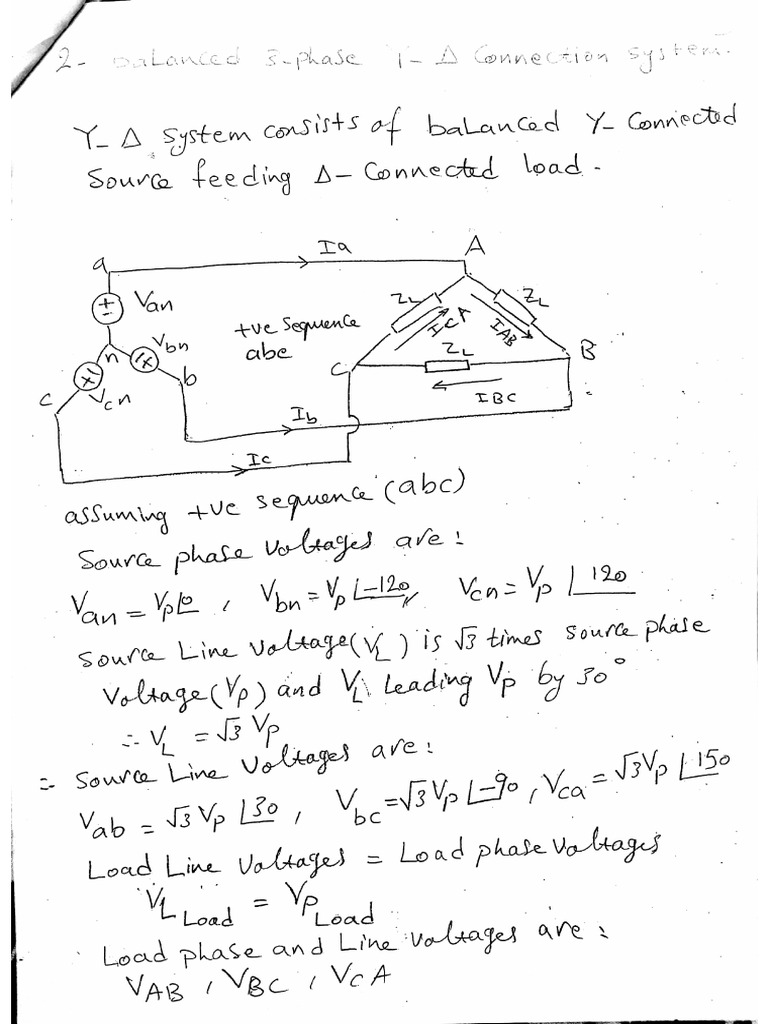 2- Balanced 3-phase Y- Δ Connection system.
Y- Δ system consists of balanced Y- Connected
Source feeding Δ- Connected load.
a
Ia
A
Van
+ve Sequence
abc
ZL
ICA
IAB
ZL
n
Vbn
b
c
Vcn
C
ZL
B
IBC
Ib
Ic
assuming +ve sequence (abc)
Source phase voltages are:
Van = Vp∠0 , Vbn = Vp∠-120, Vcn = Vp∠120
Source Line voltage(VL) is √3 times source phase
Voltage(Vp) and VL leading Vp by 30°
∴ VL = √3 Vp
∴ Source Line Voltages are:
Vab = √3 Vp ∠30 , Vbc = √3 Vp ∠-90 , Vca = √3 Vp ∠150
Load Line Voltages = Load phase Voltages
VL Load = Vp Load
Load phase and Line voltages are:
VAB , VBC , VCA